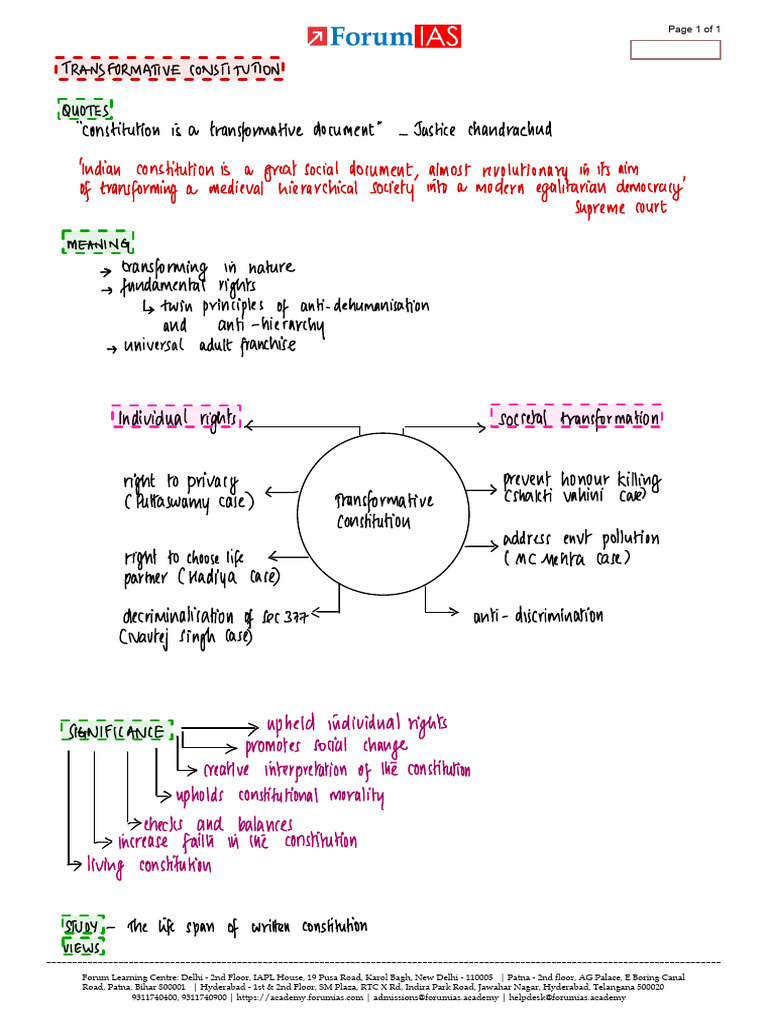 Page 1 of 1
ForumIAS
TRANSFORMATIVE CONSTITUTION
QUOTES
"constitution is a transformative document" - Justice chandrachud
'Indian constitution is a great social document, almost revolutionary in its aim
of transforming a medieval hierarchical society into a modern egalitarian democracy'
supreme court
MEANING
→ transforming in nature
→ fundamental rights
↳ twin principles of anti-dehumanisation
and anti-hierarchy
→ universal adult franchise
Individual rights
societal transformation
right to privacy
(Puttaswamy case)
right to choose life
partner (Hadiya case)
decriminalisation of sec 377
(Navtej singh case)
Transformative
constitution
prevent honour killing
(shakti vahini case)
address envt pollution
(MC Mehta case)
anti-discrimination
SIGNIFICANCE
upheld individual rights
promotes social change
creative interpretation of the constitution
upholds constitutional morality
checks and balances
increase faith in the constitution
living constitution
STUDY - The life span of written constitution
VIEWS
Forum Learning Centre: Delhi - 2nd Floor, IAPL House, 19 Pusa Road, Karol Bagh, New Delhi - 110005 | Patna - 2nd floor, AG Palace, E Boring Canal
Road, Patna, Bihar 800001 | Hyderabad - 1st & 2nd Floor, SM Plaza, RTC X Rd, Indira Park Road, Jawahar Nagar, Hyderabad, Telangana 500020
9311740400, 9311740900 | https://academy.forumias.com | admissions@forumias.academy | helpdesk@forumias.academy